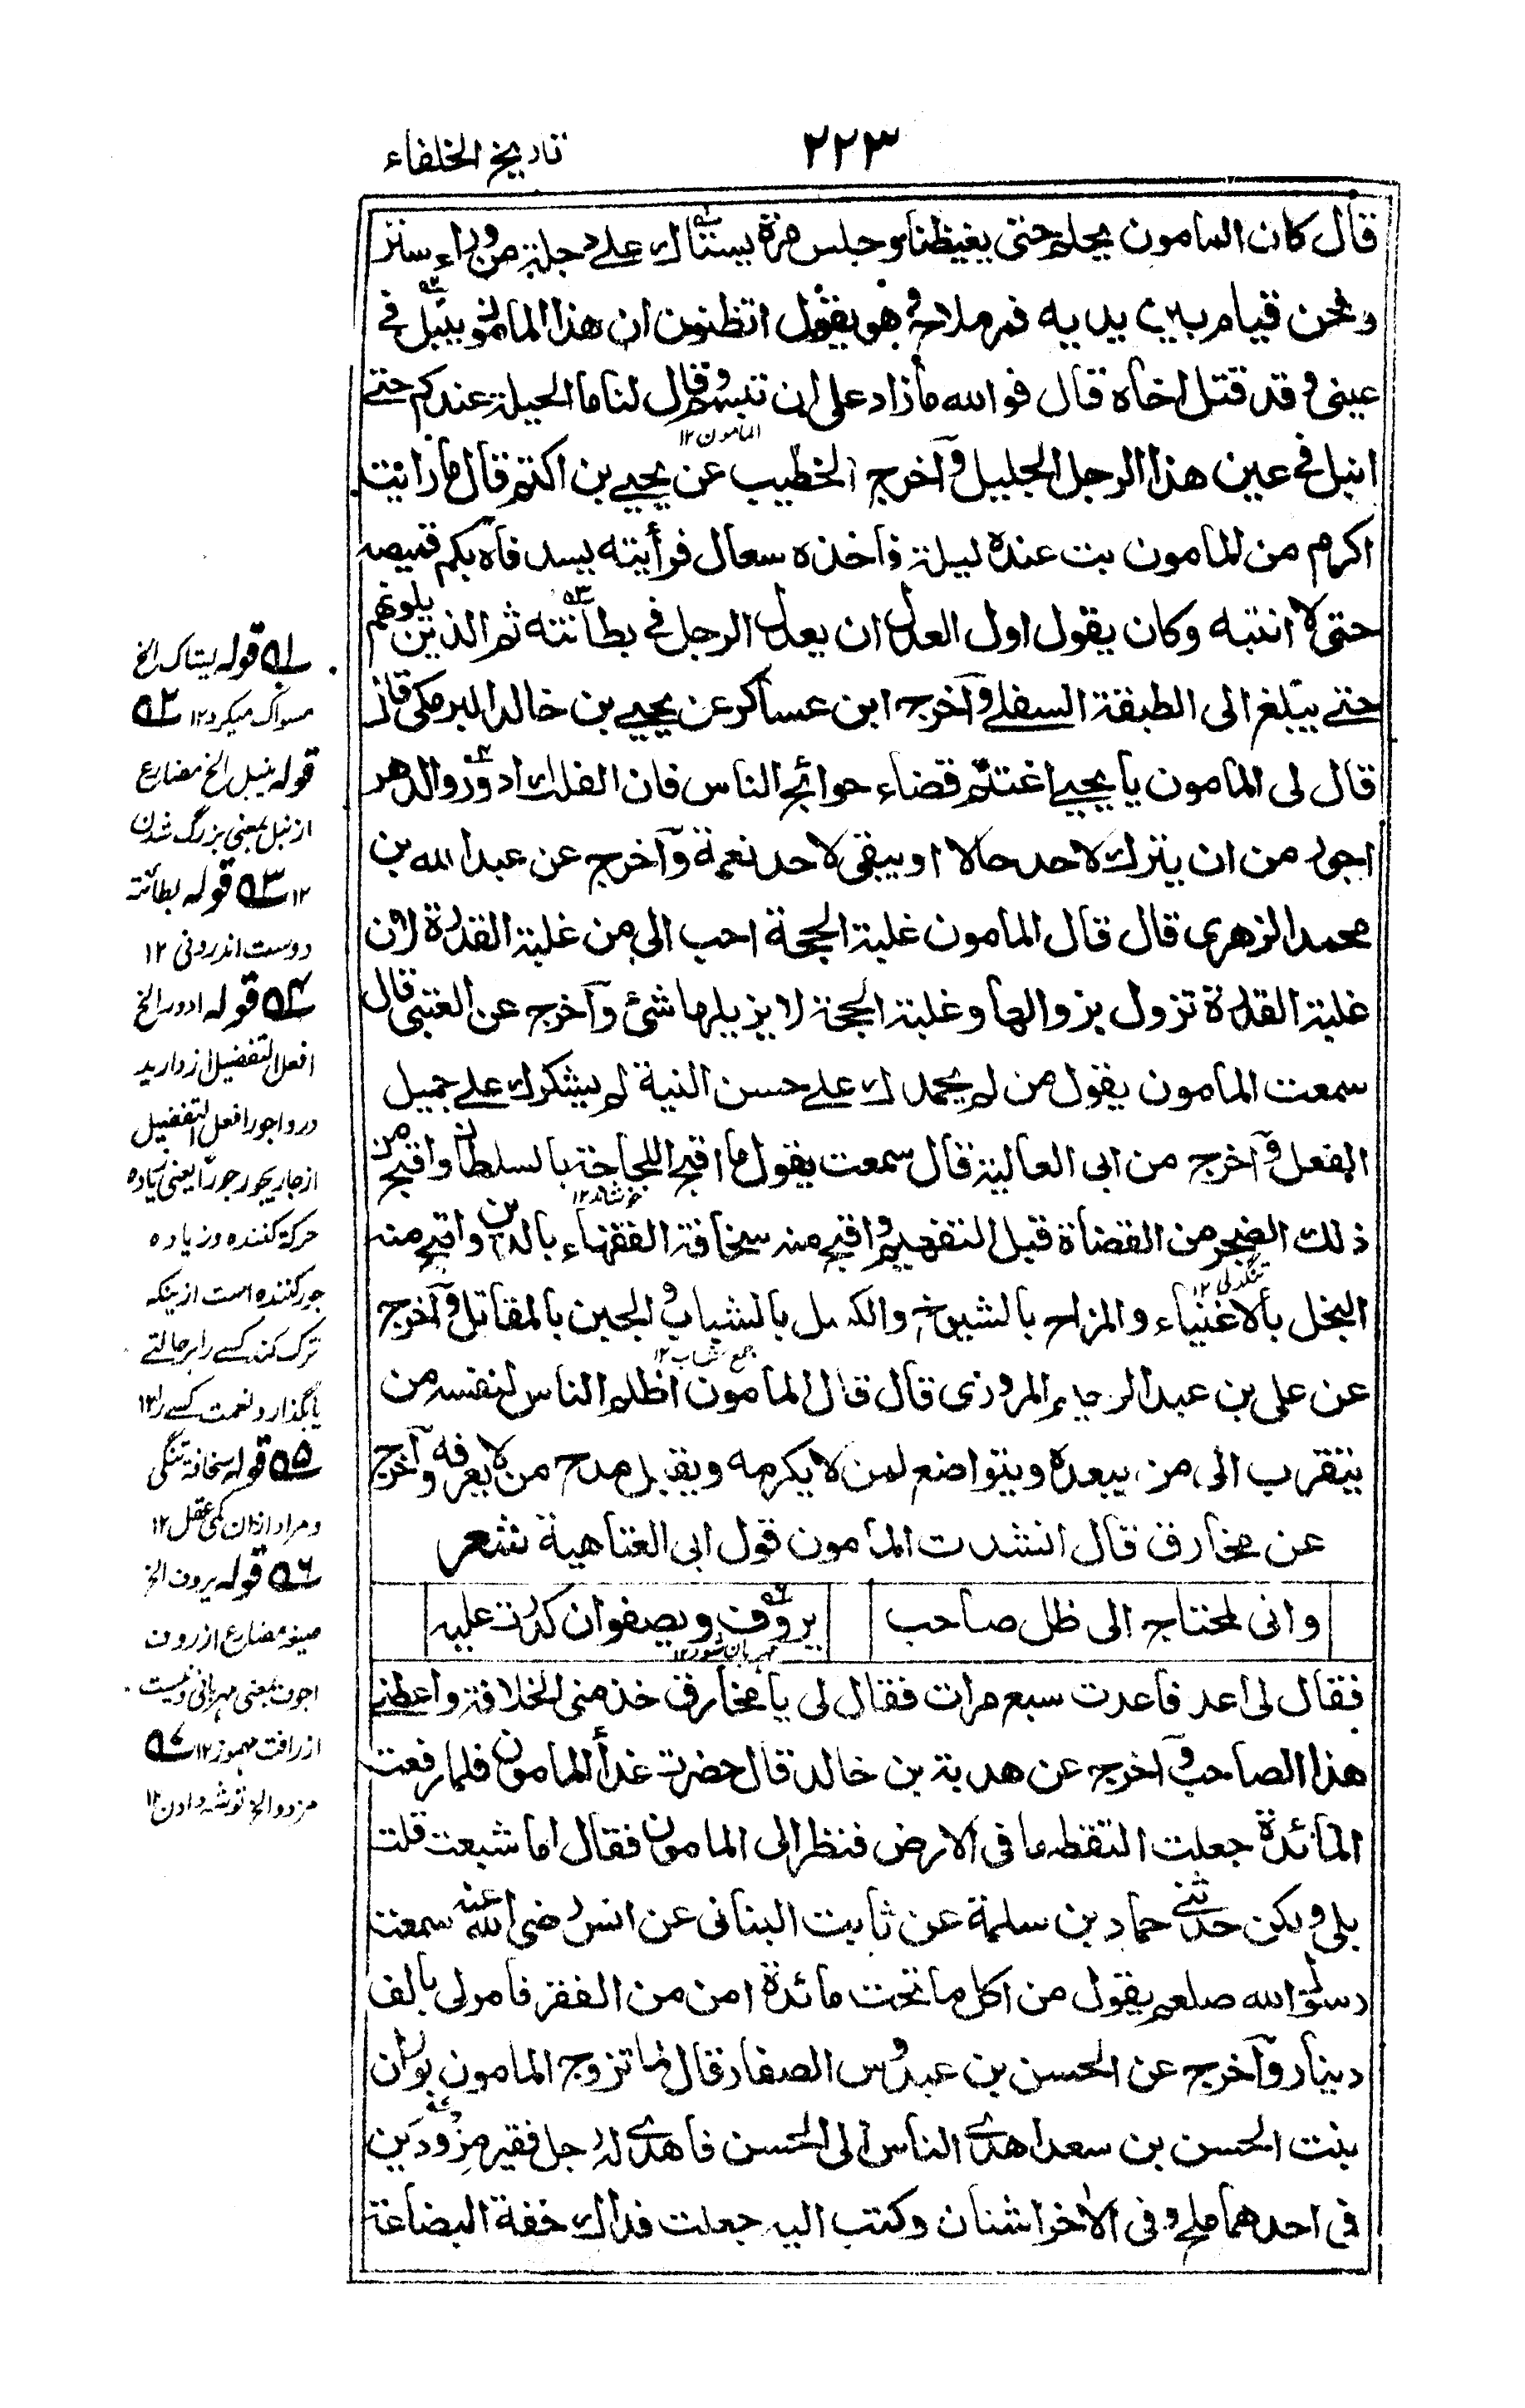 ٢٢٣
تاريخ الخلفاء
قال كان المامون يحلم حتى يغيظنا وجلس مرة يستاك على دجلة من وراء ستر
ونحن قيام بين يديه فمر ملاح وهو يقول اتظنون ان هذا المامون ينبل فى
عينى وقد قتل اخاه قال فوالله ما زاد على ان تبسم وقال لنا ما الحيلة عندكم حتى
المامون ١٢
انبل فى عين هذا الرجل الجليل وآخرج الخطيب عن يحيى بن اكثم قال ما رائيت
اكرم من المامون بت عنده ليلة فاخذه سعال فرأيته يسد فاه بكم قميصه
حتى لا انتبه وكان يقول اول العدل ان يعدل الرجل فى بطانته ثم الذين يلونهم
حتى يبلغ الى الطبقة السفلى وآخرج ابن عساكر عن يحيى بن خالد البرمكى قال
قال لى المامون يا يحيى اغتنم قضاء حوائج الناس فان الفلك ادور والدهر
اجور من ان يترك لاحد حالا او يبقى لاحد نعمة وآخرج عن عبد الله بن
محمد الزهرى قال قال المامون غلبة الحجة احب الى من غلبة القدرة لان
غلبة القدرة تزول بزوالها وغلبة الحجة لا يزيلها شئ وآخرج عن العتبى قال
سمعت المامون يقول من لم يحمدك على حسن النية لم يشكرك على جميل
الفعل وآخرج من ابى العالية قال سمعت يقول ما اقبح اللجاجة بالسلطان واقبح من
خوشامد ١٢
ذلك الضجر من القضاة قبل التفهيم واقبح منه سخافة الفقهاء بالدين واقبح منه
تنگدلى ١٢
البخل بالاغنياء والمزاح بالشيوخ والكسل بالشباب والجبن بالمقاتل وآخرج
جمع شاب ١٢
عن على بن عبد الرحيم المروزى قال قال المامون اظلم الناس لنفسه من
يتقرب الى من يبعده ويتواضع لمن لا يكرمه ويقبل مدح من لا يعرفه وآخرج
عن مخارق قال انشدت المامون قول ابى العتاهية شعر
وانى لمحتاج الى ظل صاحب يروف ويصفو ان كدرت عليه
مهربان شود ١٢
فقال لى اعد فاعدت سبع مرات فقال لى يا مخارق خذ منى الخلافة واعطنى
هذا الصاحب وآخرج عن هدبة بن خالد قال حضرت غدأ المامون فلما رفعت
المائدة جعلت التقط ما فى الارض فنظر الى المامون فقال اما شبعت قلت
بلى ولكن حدثنى حماد بن سلمة عن ثابت البنانى عن انس رضى الله عنه سمعت
رسول الله صلعم يقول من اكل ما تحت مائدة امن من الفقر فامر لى بالف
دينار وآخرج عن الحسن بن عبدوس الصفار قال لما تزوج المامون بوران
بنت الحسن بن سعد اهدى الناس الى الحسن فاهدى له رجل فقير مزودين
فى احدهما ملح وفى الاخر اشنان وكتب اليه جعلت فداك خفة البضاعة
ـه١ قوله يستاك الخ
مسواك ميكرد ١٢ ـه٢
قوله ينبل الخ مضارع
از نبل بمعنى بزرگ شدن
١٢ ـه٣ قوله بطانته
دوست اندرونى ١٢
ـه٤ قوله ادور الخ
افعل التفضيل از دار يد
درو اجور افعل التفضيل
از جار يجور جورا يعنى زياده
حركة كننده وزياده
جور كننده است ازينكه
ترك كند كسے را بر حالتے
يا بگذارد نعمت كسے را ١٢
ـه٥ قوله سخافة تنگى
ومراد ازان كمى عقل ١٢
ـه٦ قوله يروف الخ
صيغه مضارع از روف
اجوف بمعنى مهربانى ونيست
از رافت مهموز ١٢ ـه٧
مزود الخ توشه دان ١٢